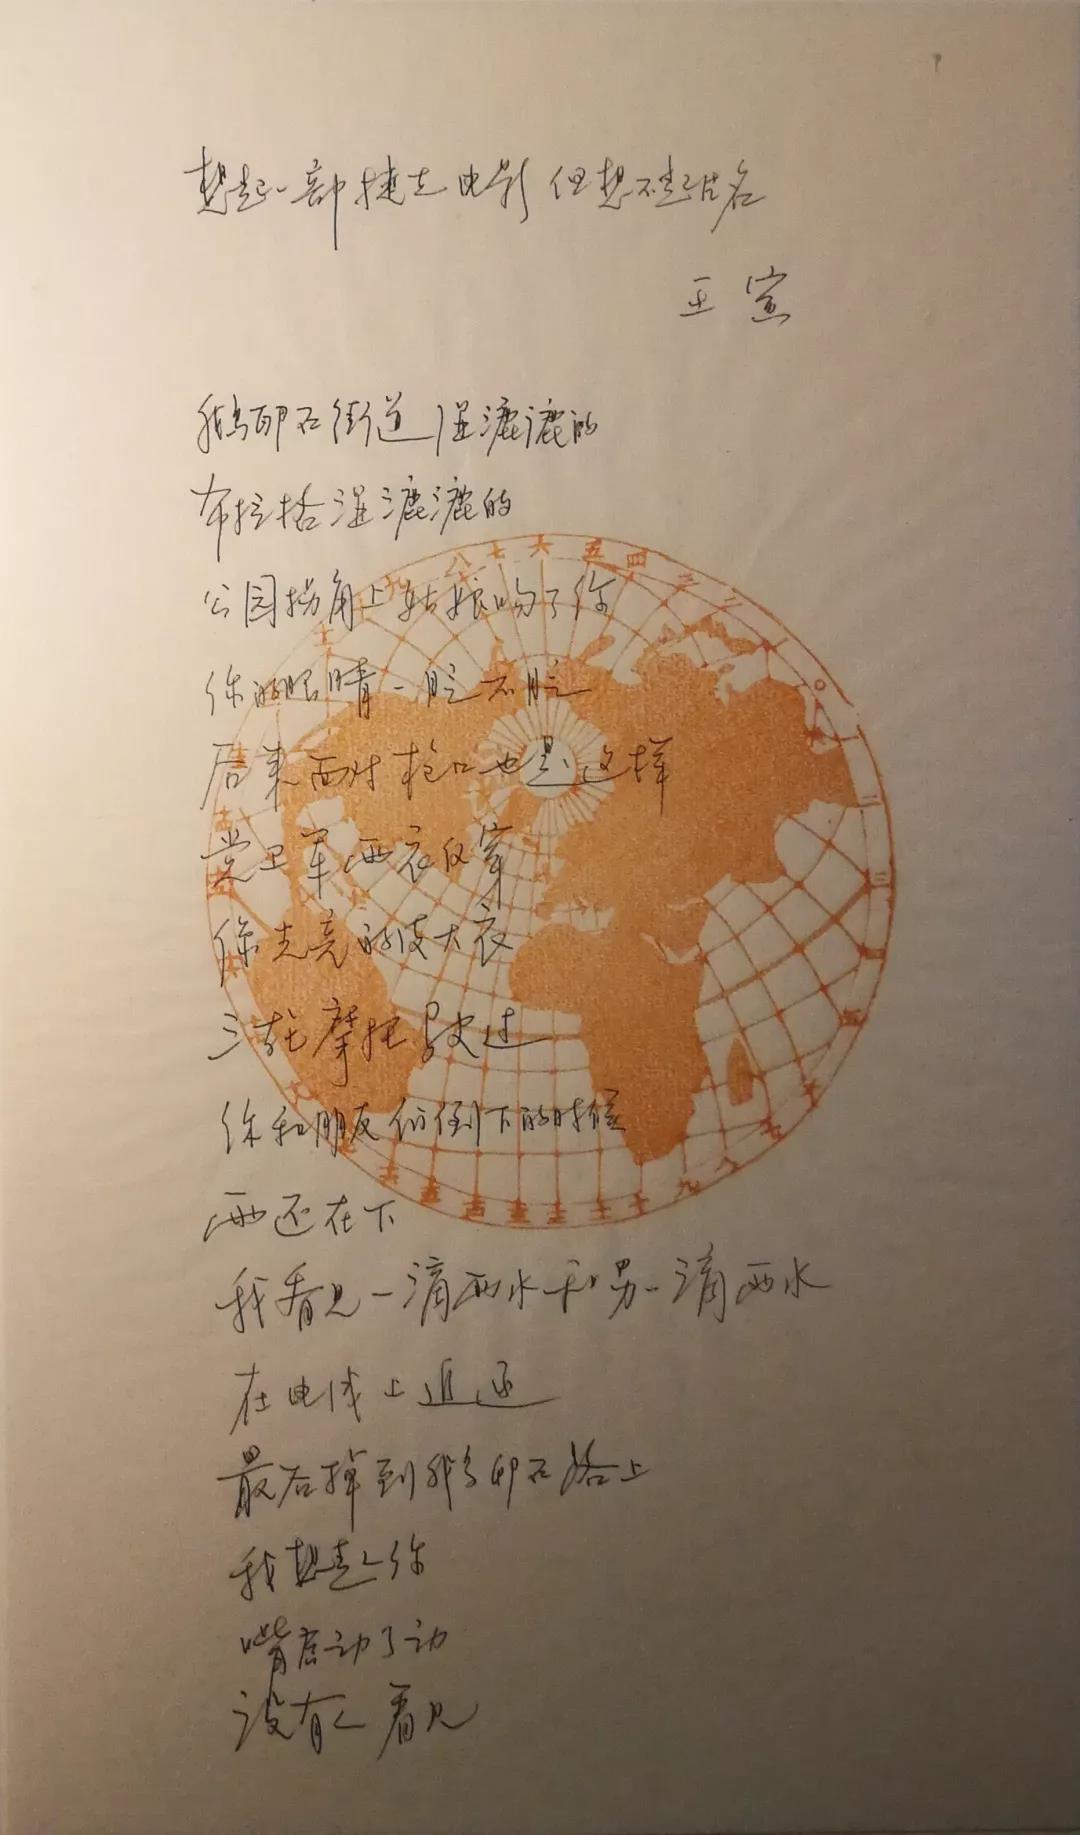 想起一部捷克电影但想不起片名
王寅
鹅卵石街道湿漉漉的
布拉格湿漉漉的
公园拐角上姑娘吻了你
你的眼睛一眨不眨
后来面对枪口也是这样
党卫军雨衣反穿
像光亮的皮大衣
三轮摩托驶过
你和朋友们倒下的时候
雨还在下
我看见一滴雨水和另一滴雨水
在电线上追逐
最后掉到鹅卵石路上
我想起你
嘴唇动了动
没有人看见
八 七 六 五 四 三 二